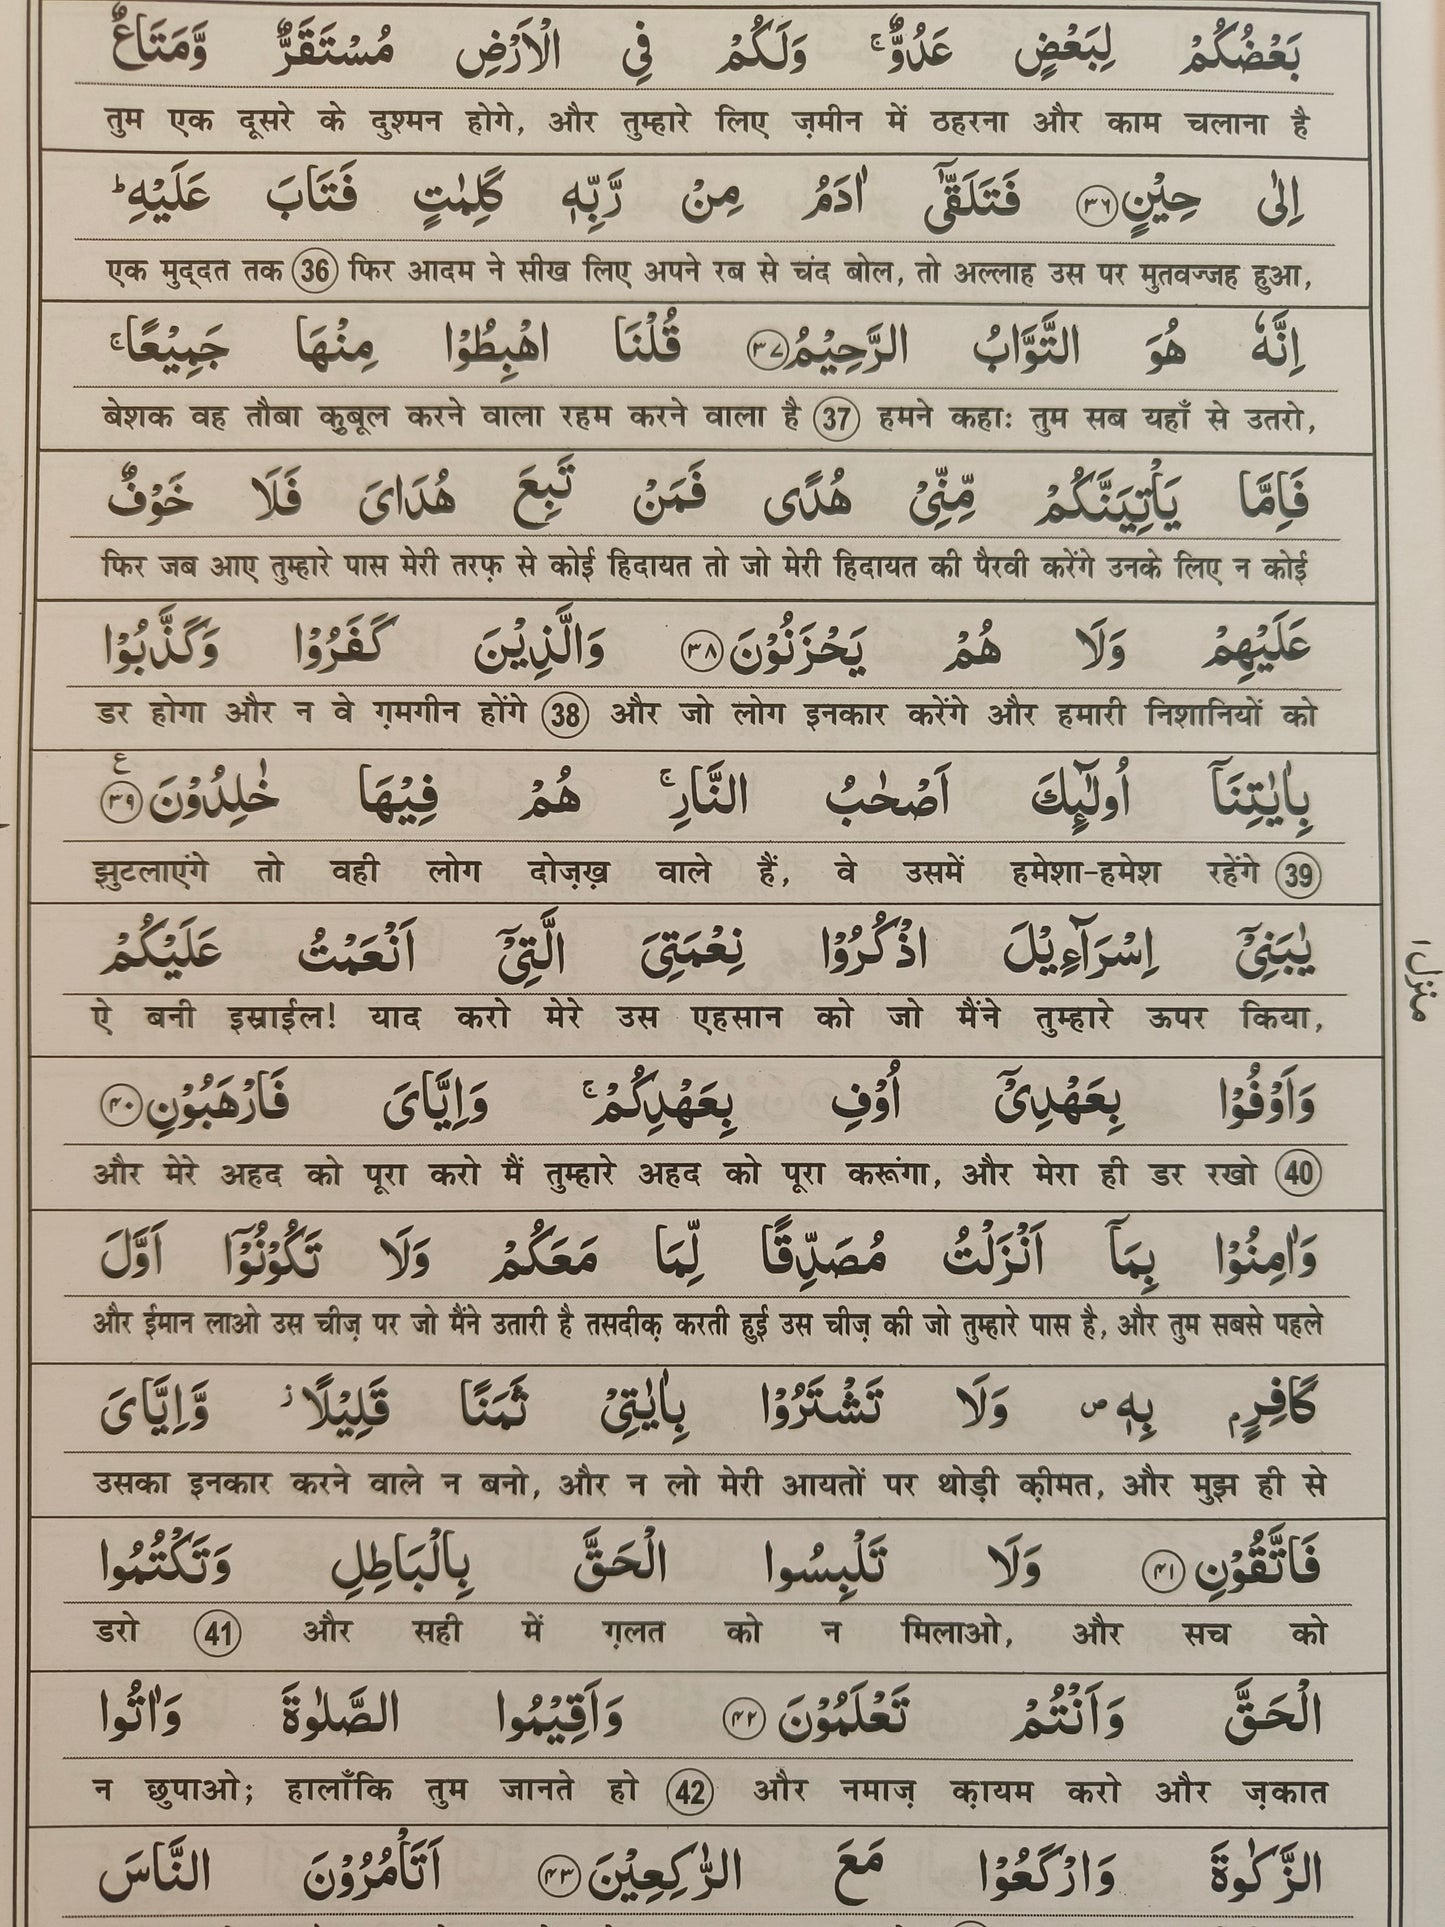 بَعْضُكُمْ لِبَعْضٍ عَدُوٌّ ۚ وَلَكُمْ فِي الْاَرْضِ مُسْتَقَرٌّ وَّمَتَاعٌ
तुम एक दूसरे के दुश्मन होगे, और तुम्हारे लिए ज़मीन में ठहरना और काम चलाना है
اِلٰى حِيْنٍ ﴿۳۶﴾ فَتَلَقّٰۤى اٰدَمُ مِنْ رَّبِّهٖ كَلِمٰتٍ فَتَابَ عَلَيْهِ ؕ
एक मुद्दत तक (36) फिर आदम ने सीख लिए अपने रब से चंद बोल, तो अल्लाह उस पर मुतवज्जह हुआ,
اِنَّهٗ هُوَ التَّوَّابُ الرَّحِيْمُ ﴿۳۷﴾ قُلْنَا اهْبِطُوْا مِنْهَا جَمِيْعًا ۚ
बेशक वह तौबा क़ुबूल करने वाला रहम करने वाला है (37) हमने कहाः तुम सब यहाँ से उतरो,
فَاِمَّا يَاْتِيَنَّكُمْ مِّنِّيْ هُدًى فَمَنْ تَبِعَ هُدَايَ فَلَا خَوْفٌ
फिर जब आए तुम्हारे पास मेरी तरफ़ से कोई हिदायत तो जो मेरी हिदायत की पैरवी करेंगे उनके लिए न कोई
عَلَيْهِمْ وَلَا هُمْ يَحْزَنُوْنَ ﴿۳۸﴾ وَالَّذِيْنَ كَفَرُوْا وَكَذَّبُوْا
डर होगा और न वे ग़मगीन होंगे (38) और जो लोग इनकार करेंगे और हमारी निशानियों को
بِاٰيٰتِنَاۤ اُولٰٓئِكَ اَصْحٰبُ النَّارِ ۚ هُمْ فِيْهَا خٰلِدُوْنَ ﴿۳۹﴾ ع
झुटलाएंगे तो वही लोग दोज़ख़ वाले हैं, वे उसमें हमेशा-हमेश रहेंगे (39)
يٰبَنِيْۤ اِسْرَآءِيْلَ اذْكُرُوْا نِعْمَتِيَ الَّتِيْۤ اَنْعَمْتُ عَلَيْكُمْ
ऐ बनी इस्राईल! याद करो मेरे उस एहसान को जो मैंने तुम्हारे ऊपर किया,
وَاَوْفُوْا بِعَهْدِيْۤ اُوْفِ بِعَهْدِكُمْ ۚ وَاِيَّايَ فَارْهَبُوْنِ ﴿۴۰﴾
और मेरे अहद को पूरा करो मैं तुम्हारे अहद को पूरा करूंगा, और मेरा ही डर रखो (40)
وَاٰمِنُوْا بِمَاۤ اَنْزَلْتُ مُصَدِّقًا لِّمَا مَعَكُمْ وَلَا تَكُوْنُوْۤا اَوَّلَ
और ईमान लाओ उस चीज़ पर जो मैंने उतारी है तसदीक़ करती हुई उस चीज़ की जो तुम्हारे पास है, और तुम सबसे पहले
كَافِرٍۭ بِهٖ ۪ وَلَا تَشْتَرُوْا بِاٰيٰتِيْ ثَمَنًا قَلِيْلًا ؗ وَّاِيَّايَ
उसका इनकार करने वाले न बनो, और न लो मेरी आयतों पर थोड़ी क़ीमत, और मुझ ही से
فَاتَّقُوْنِ ﴿۴۱﴾ وَلَا تَلْبِسُوا الْحَقَّ بِالْبَاطِلِ وَتَكْتُمُوا
डरो (41) और सही में ग़लत को न मिलाओ, और सच को
الْحَقَّ وَاَنْتُمْ تَعْلَمُوْنَ ﴿۴۲﴾ وَاَقِيْمُوا الصَّلٰوةَ وَاٰتُوا
न छुपाओ; हालाँकि तुम जानते हो (42) और नमाज़ क़ायम करो और ज़कात
الزَّكٰوةَ وَارْكَعُوْا مَعَ الرّٰكِعِيْنَ ﴿۴۳﴾ اَتَاْمُرُوْنَ النَّاسَ
منزل ۱